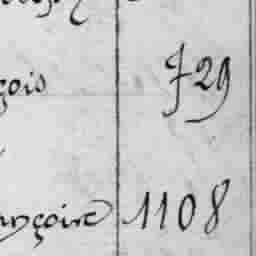 çois 729
nçoire 1108